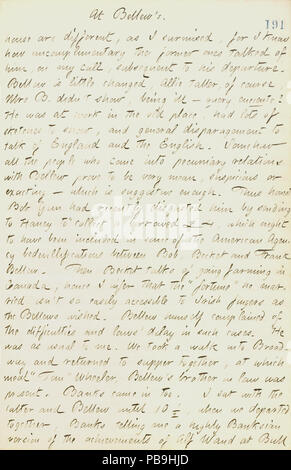 At Bellew's.
191
news are different, as I surmised, for I know
how uncomplimentary the former ones talked of
him, on my call, subsequent to his departure.
Bellew is little changed. Allie taller, of course.
Mrs B. didn't show, being ill
He was at work in the old place, had lots of
sketches to show, and general disparagement to
talk of England and the English. Somehow
all the people who come into pecuniary relations
with Bellew prove to be very mean, suspicious or
exacting — which is suggestive enough. Thus
Bob Gun had him by sending
to Haney to collect borrowed which ought
to have been included in some of the American Agen-
cy bedevilifications between Bob, Becket and Frank
Bellew. Then Becket talks of going farming in
Canada, whence I infer that the "fortune" he mar-
ried isn't so easily accessible to Irish fingers as
the Bellews wished. Bellew himself complained of
the difficulties and laws' delay in such cases. He
was as usual to me. We took a walk into Broad-
way and returned to supper together, at which
meal Tom Wheeler, Bellew's brother in law was
present. Banks came in too. I sat with the
latter and Bellew until 10 when we departed
together, Banks telling me a highly Banksian
version of the achievements of Alf Waud at Bull
alamy
alamy
PB9HJD